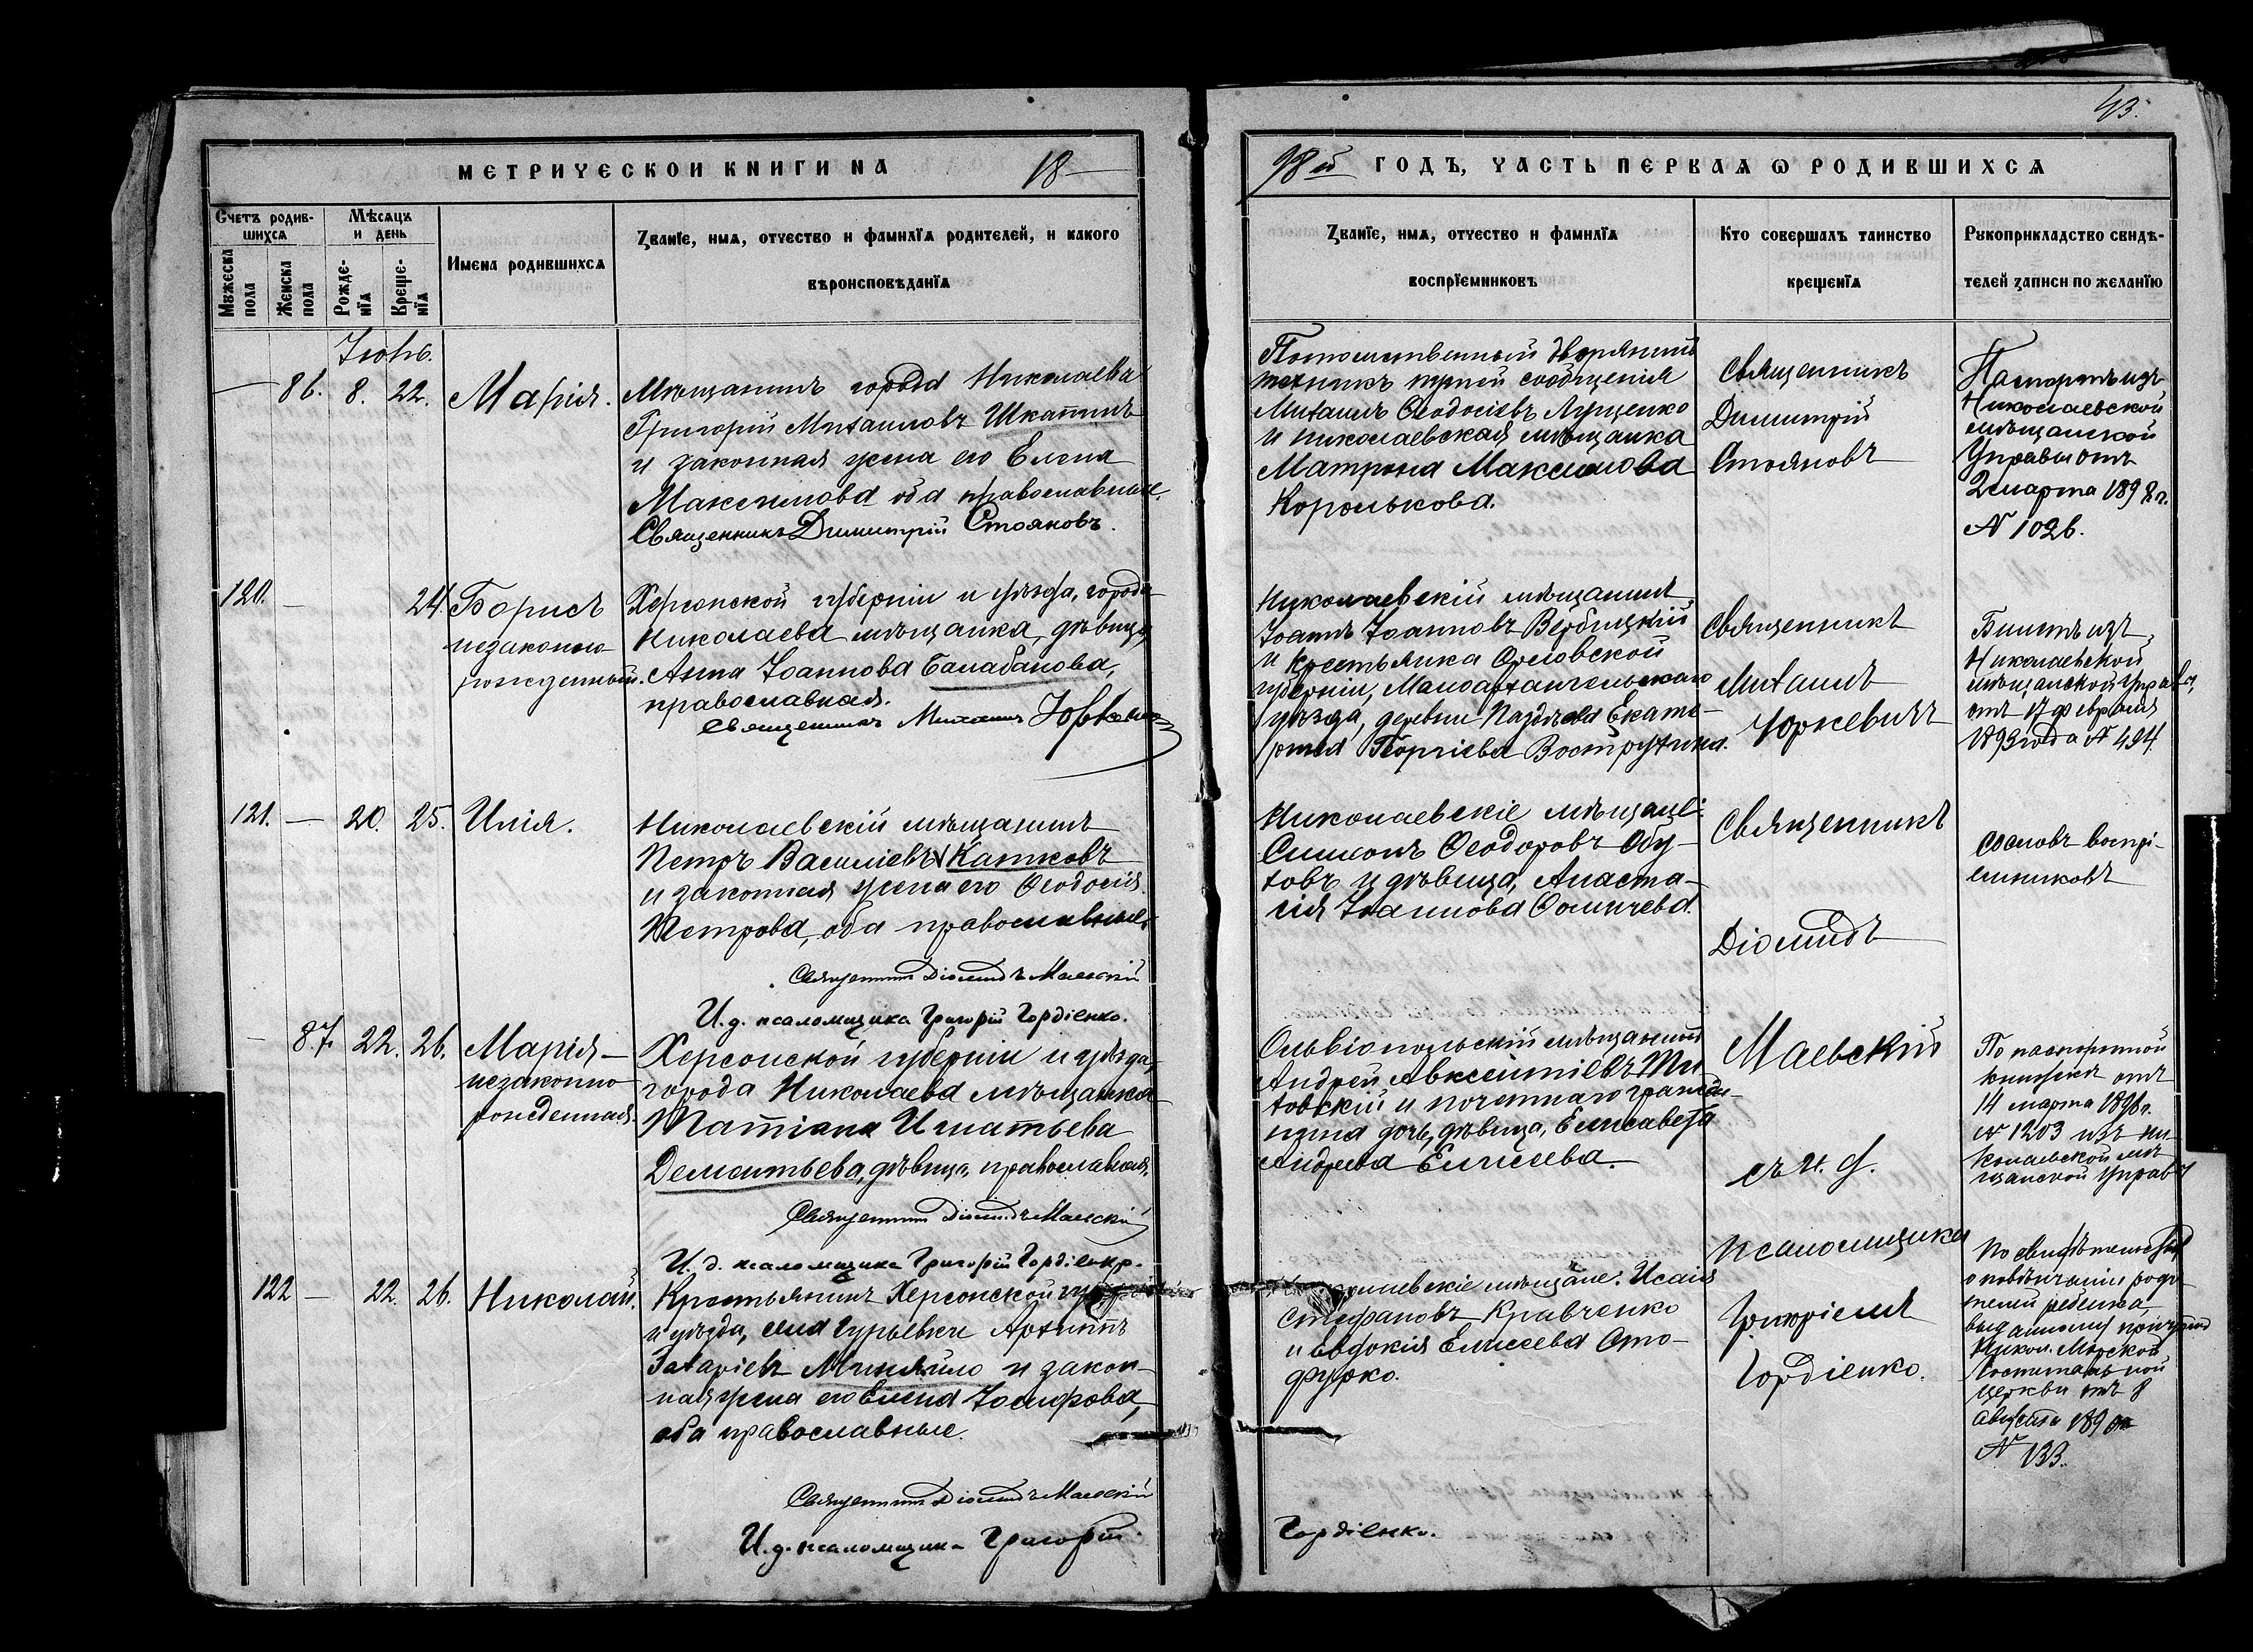 43.
МЕТРИЧЕСКОЙ КНИГИ НА 18
98й ГОДЪ, ЧАСТЬ ПЕРВАѦ Ѡ РОДИВШИХСѦ
Счетъ родив-
шихсѧ
Мѣсѧцъ
и день
Мꙋжеска
пола
Женска
пола
Рожде-
нїѧ
Креще-
нїѧ
Имена родившихсѧ
Званїе, имѧ, отчество и фамилїѧ родителей, и какого
вѣроисповѣданїѧ
Званїе, имѧ, отчество и фамилїѧ
воспрїемниковъ
Кто совершалъ таинство
крещенїѧ
Рꙋкоприкладство свидѣ-
телей записи по желанїю
Іюнь.
— 86. 8. 22.
Марія.
Мѣщанинъ города Николаева
Григорій Михаиловъ
и законная жена его Елена
Максимова оба православные.
Священникъ Димитрій Стояновъ.
Потомственный дворянинъ
техникъ путей сообщенія
Михаилъ Ѳеодосіевъ Луценко
и николаевская мѣщанка
Матрона Максимова
Королькова.
Священникъ
Димитрій
Стояновъ
Паспортъ изъ
Николаевской
мѣщанской
Управы отъ
2 марта 1898 г.
№ 1026.
120. — 24.
Борисъ
незаконно
рожденный.
Херсонской губерніи и уѣзда, города
Николаева мѣщанка, дѣвица,
Анна Іоаннова Балабанова,
православная.
Священникъ Михаилъ Юркевичъ
Николаевскій мѣщанинъ
Іоаннъ Іоанновъ Вербицкій
и крестьянка Орловской
губерніи, Малоархангельскаго
уѣзда, деревни Екате-
рина Георгіева Вострухина.
Священникъ
Михаилъ
Юркевичъ
Билетъ изъ
Николаевской
мѣщанской Управы,
отъ 17 февраля
1893 года № 494.
121. — 20. 25.
Илія.
Николаевскій мѣщанинъ
Петръ Василіевъ Катковъ
и законная жена его Ѳеодосія
Петрова, оба православные.
Священникъ Діомидъ Маевскій
И. д. псаломщика Григорій Гордіенко.
Николаевскіе мѣщане:
Симеонъ Ѳеодоровъ Обу-
ховъ и дѣвица, Анаста-
сія Іоаннова Ѳомичева.
Священникъ
Діомидъ
Маевскій
съ и. д.
псаломщика
Григоріемъ
Гордіенко.
со словъ воспрі-
емниковъ
— 87. 22. 26.
Марія —
незаконно
рожденная.
Херсонской губерніи и уѣзда,
города Николаева мѣщанка
Татіана Игнатьева
Дементьева, дѣвица, православная.
Священникъ Діомидъ Маевскій
И. д. псаломщика Григорій Гордіенко.
Ольвіопольскій мѣщанинъ
Андрей Авксентіевъ Ти-
товскій и почетнаго гражда-
нина дочь, дѣвица, Елисавета
Андреева Елисеева.
По паспортной
книжкѣ отъ
14 марта 1898 г.
№ 1203 изъ Ни-
колаевской мѣ-
щанской Управы
122 — 22. 26.
Николай.
Крестьянинъ Херсонской губерніи
и уѣзда, села Гурьевки Архиппъ
Захаріевъ Миняйло и закон-
ная жена его Елена Іосифова,
оба православные.
Священникъ Діомидъ Маевскій
И. д. псаломщика Григорій
Гордіенко.
мѣщане: Исаія
Стефановъ Кравченко
и Евдокія Елисеева Сто-
фурко.
По свидѣтельству
о повѣнчаніи роди-
телей ребенка,
выданному причтомъ
Никол. Морской
Госпитальной
церкви отъ 8
августа
№ 133.